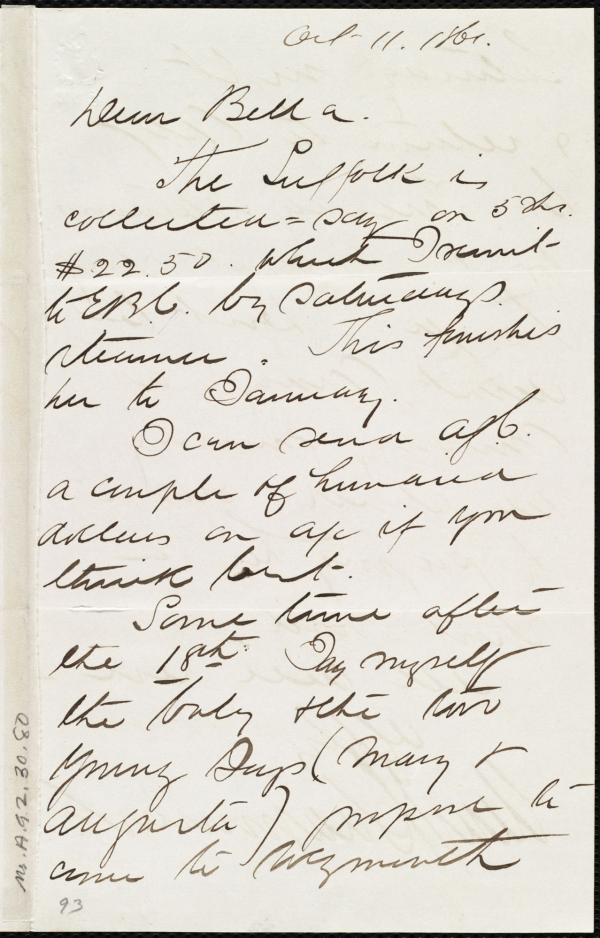 Oct 11. 1861.
Dear Bella.
The Suffolk is
collected = say on 5 shs.
$22.50. which I remit
to E.B.C. by Saturdays
steamer. This finishes
her to January.
I can send
a couple of hundred
dollars on a/c if you
think best.
Some time after
the 18th Tay myself
the baby & the two
young Days (Mary &
Augusta) propose to
come to Weymouth
Ms. A. 9. 2. 30. 80
93